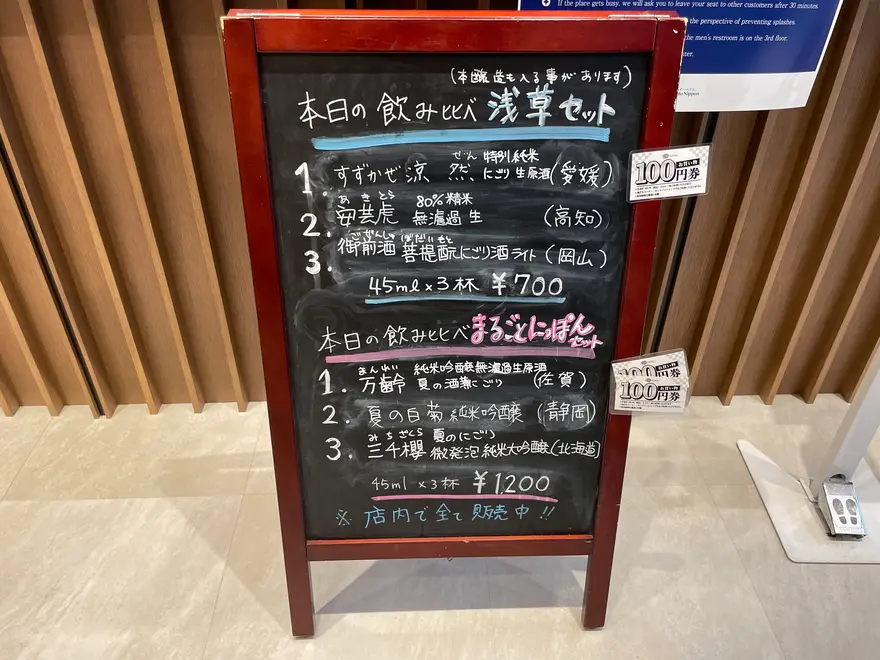 If the place gets busy, we will ask you to leave your seat to other customers after 30 minutes.
the perspective of preventing splashes.
the men's restroom is on the 3rd floor.
(本醸造も入る事があります)
本日の飲み比べ 浅草セット
1. すずかぜ涼 然、ぜん 特別純米 にごり生原酒 (愛媛)
2. 安芸虎 あきとら 80%精米 無濾過生 (高知)
3. 御前酒 ごぜんしゅ 菩提酛 ぼだいもと にごり酒ライト (岡山)
45ml×3杯 ¥700
本日の飲み比べ まるごとにっぽんセット
1. 万齢 まんれい 純米吟醸無濾過生原酒 夏の酒 にごり (佐賀)
2. 夏の白菊 純米吟醸 (静岡)
3. 三千櫻 みちざくら 夏のにごり 微発泡純米大吟醸 (北海道)
45ml ×3杯 ¥1,200
※ 店内で全て販売中!!
お買い物
100円券
100円券
お買い物
100円券